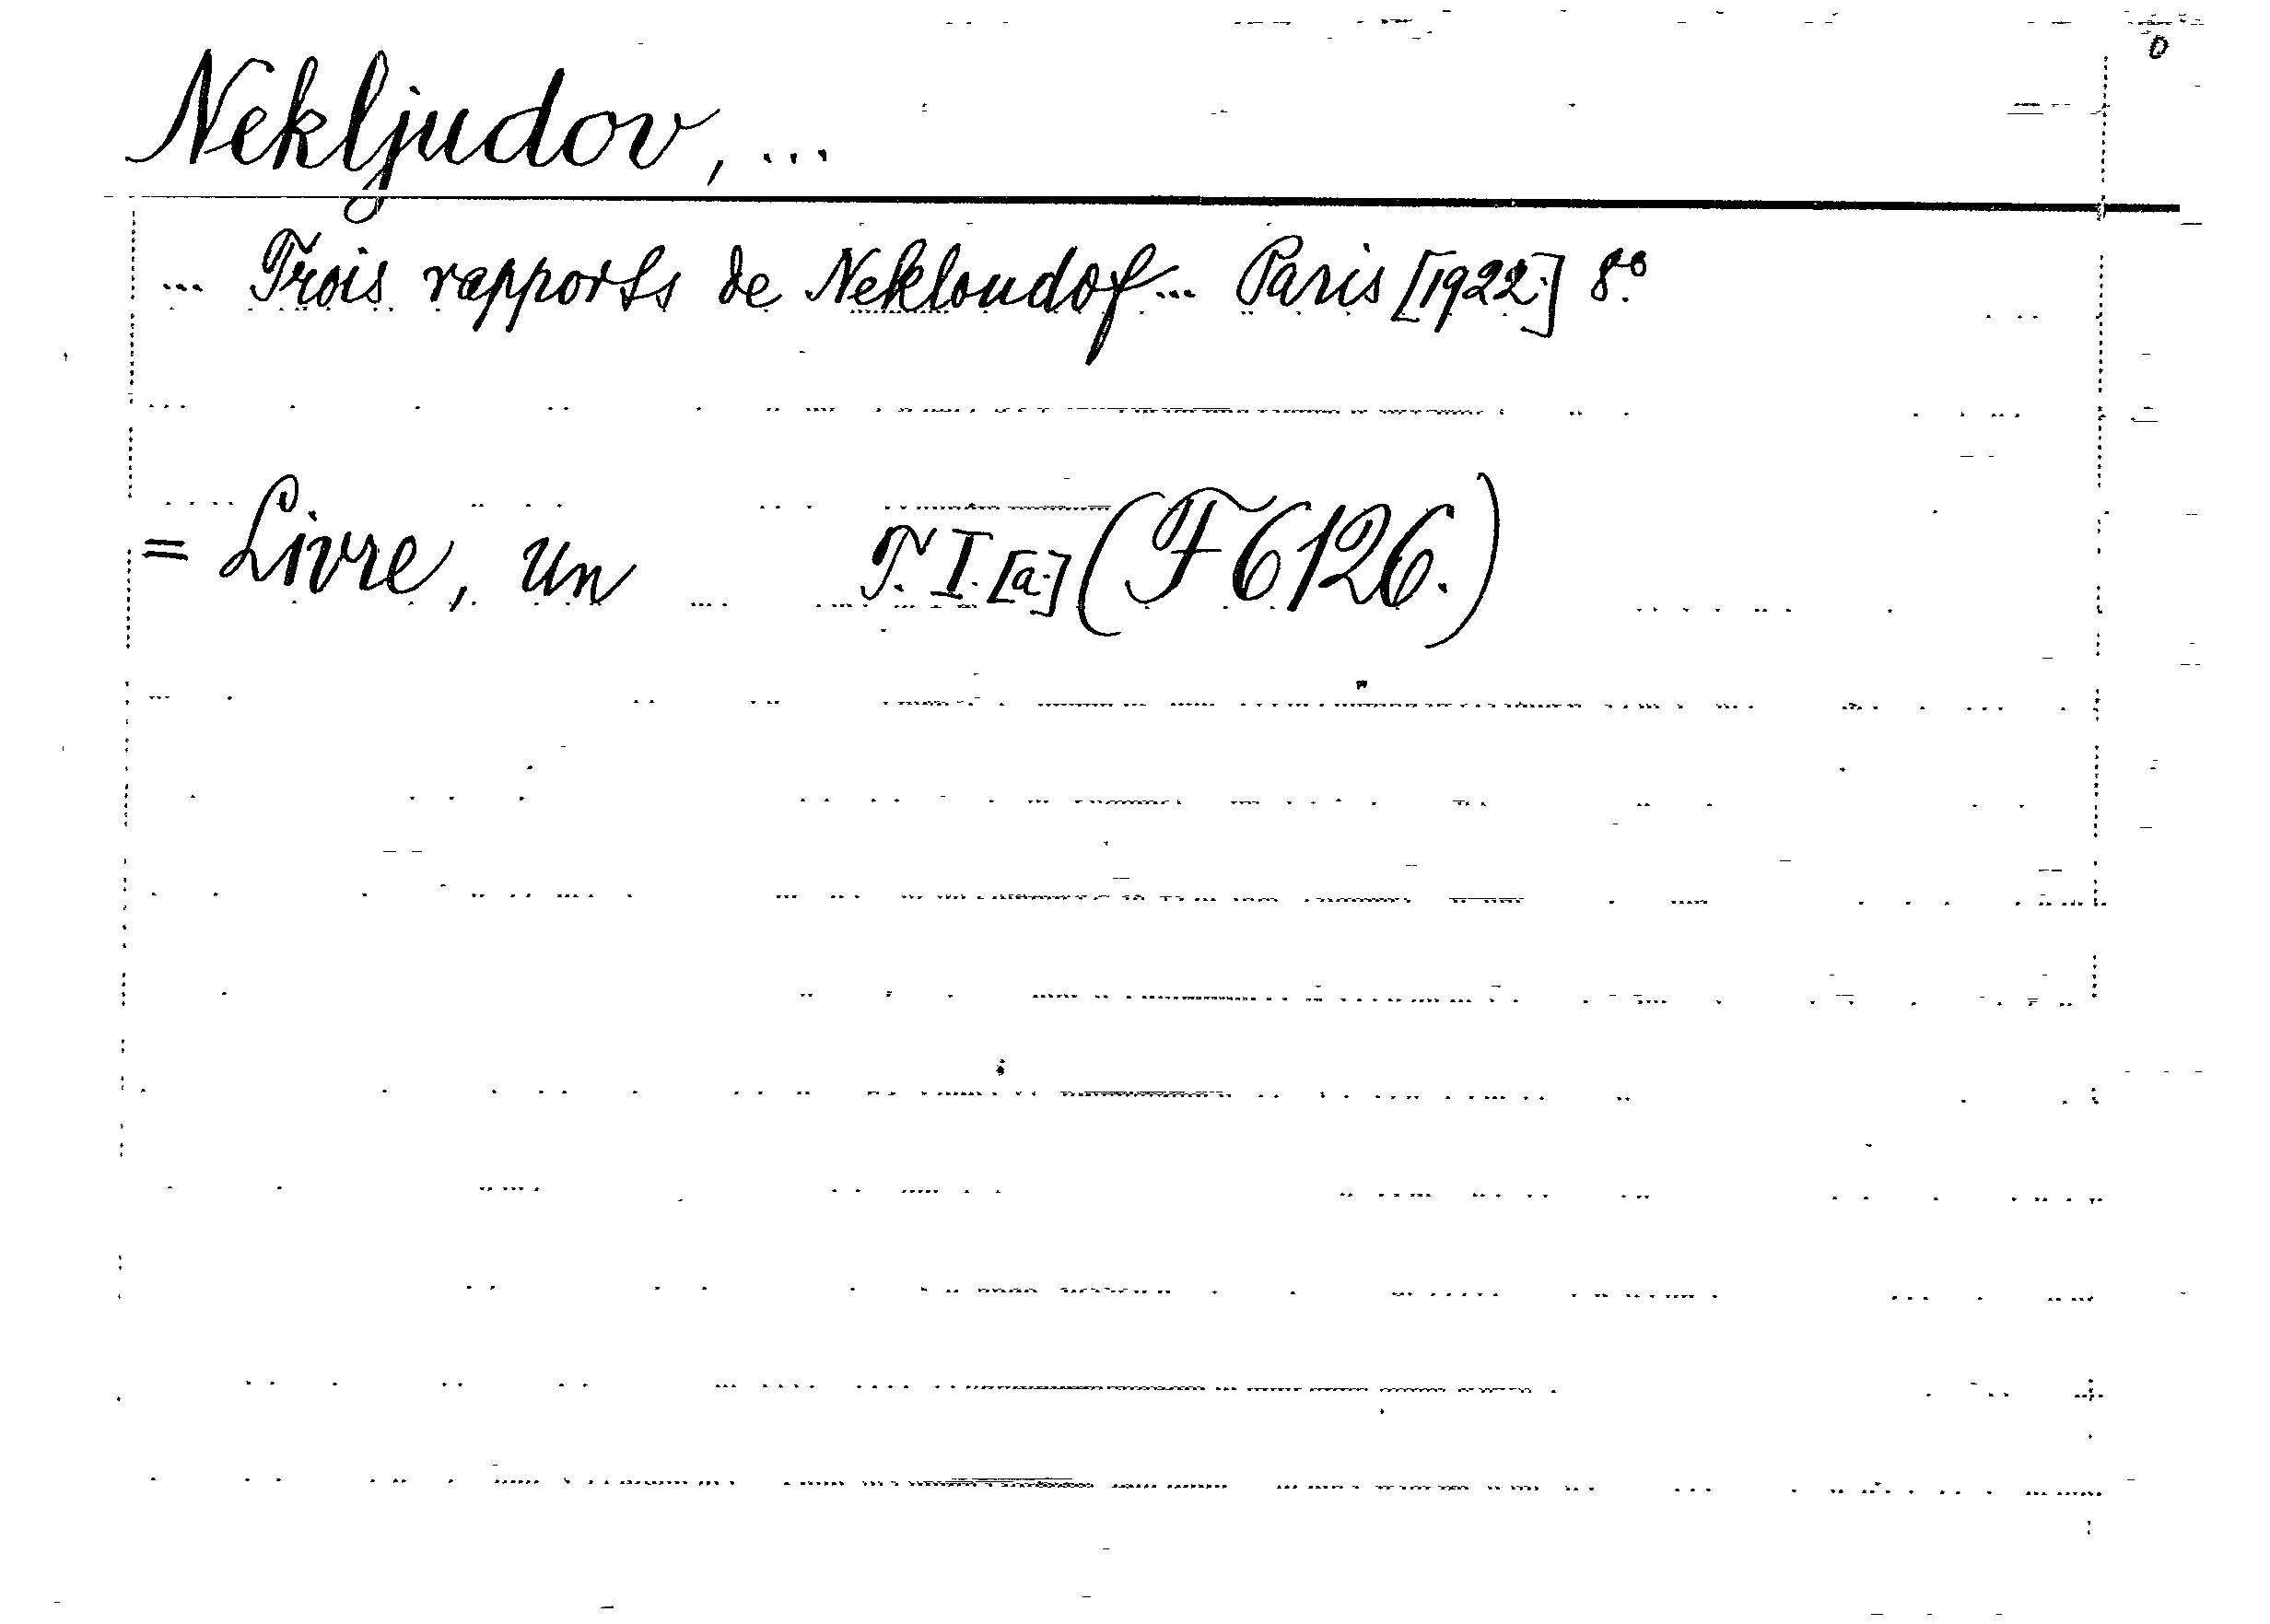 Nekljudov, ...
... Trois rapports de Nekloudof... Paris [1922.] 8.º
= Livre, un T. I. [a.] (F 6126.)